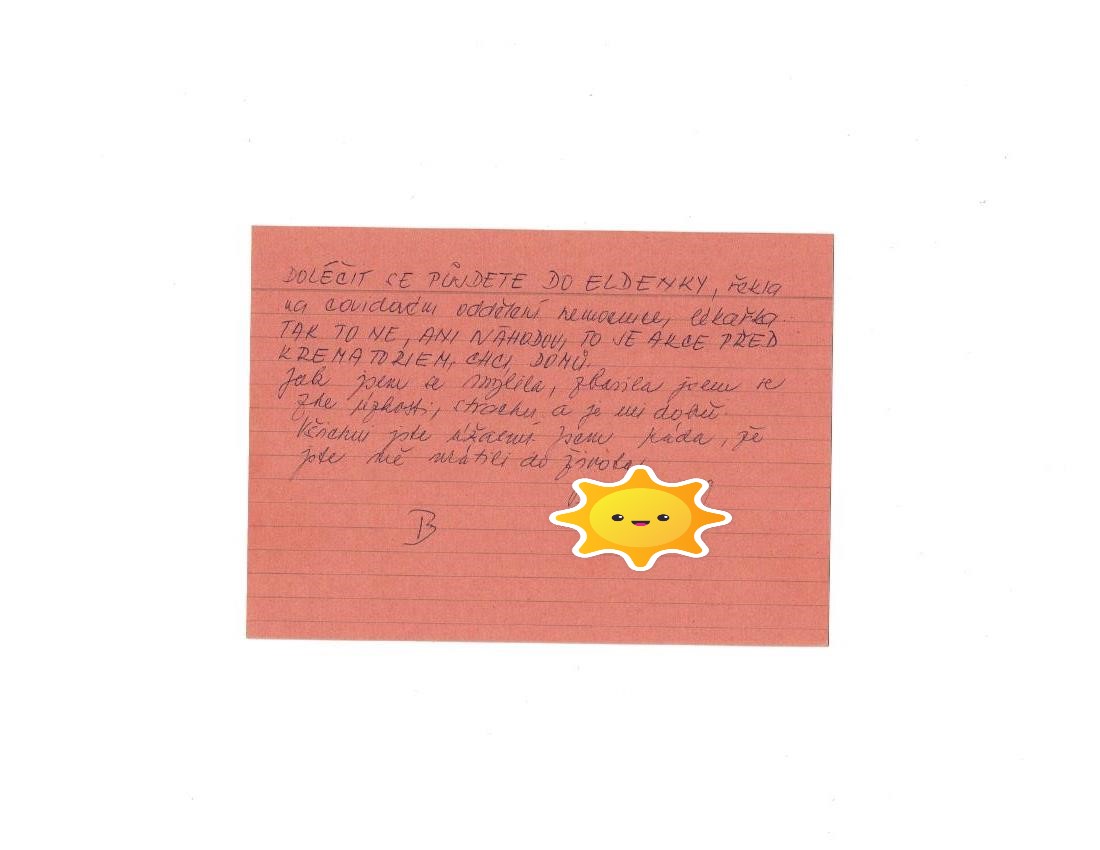 DOLÉČIT SE PŮJDETE DO ELDENKY, řekla
na covidovém oddělení nemocnice, lékařka.
TAK TO NE, ANI NÁHODOU, TO JE AKCE PŘED
KREMATORIEM, CHCI DOMŮ.
Jak jsem se mýlila, zbavila jsem se
zde úzkosti, strachu a je mi dobře.
Všichni jste úžasní. Jsem ráda, že
jste mě vrátili do života.
B